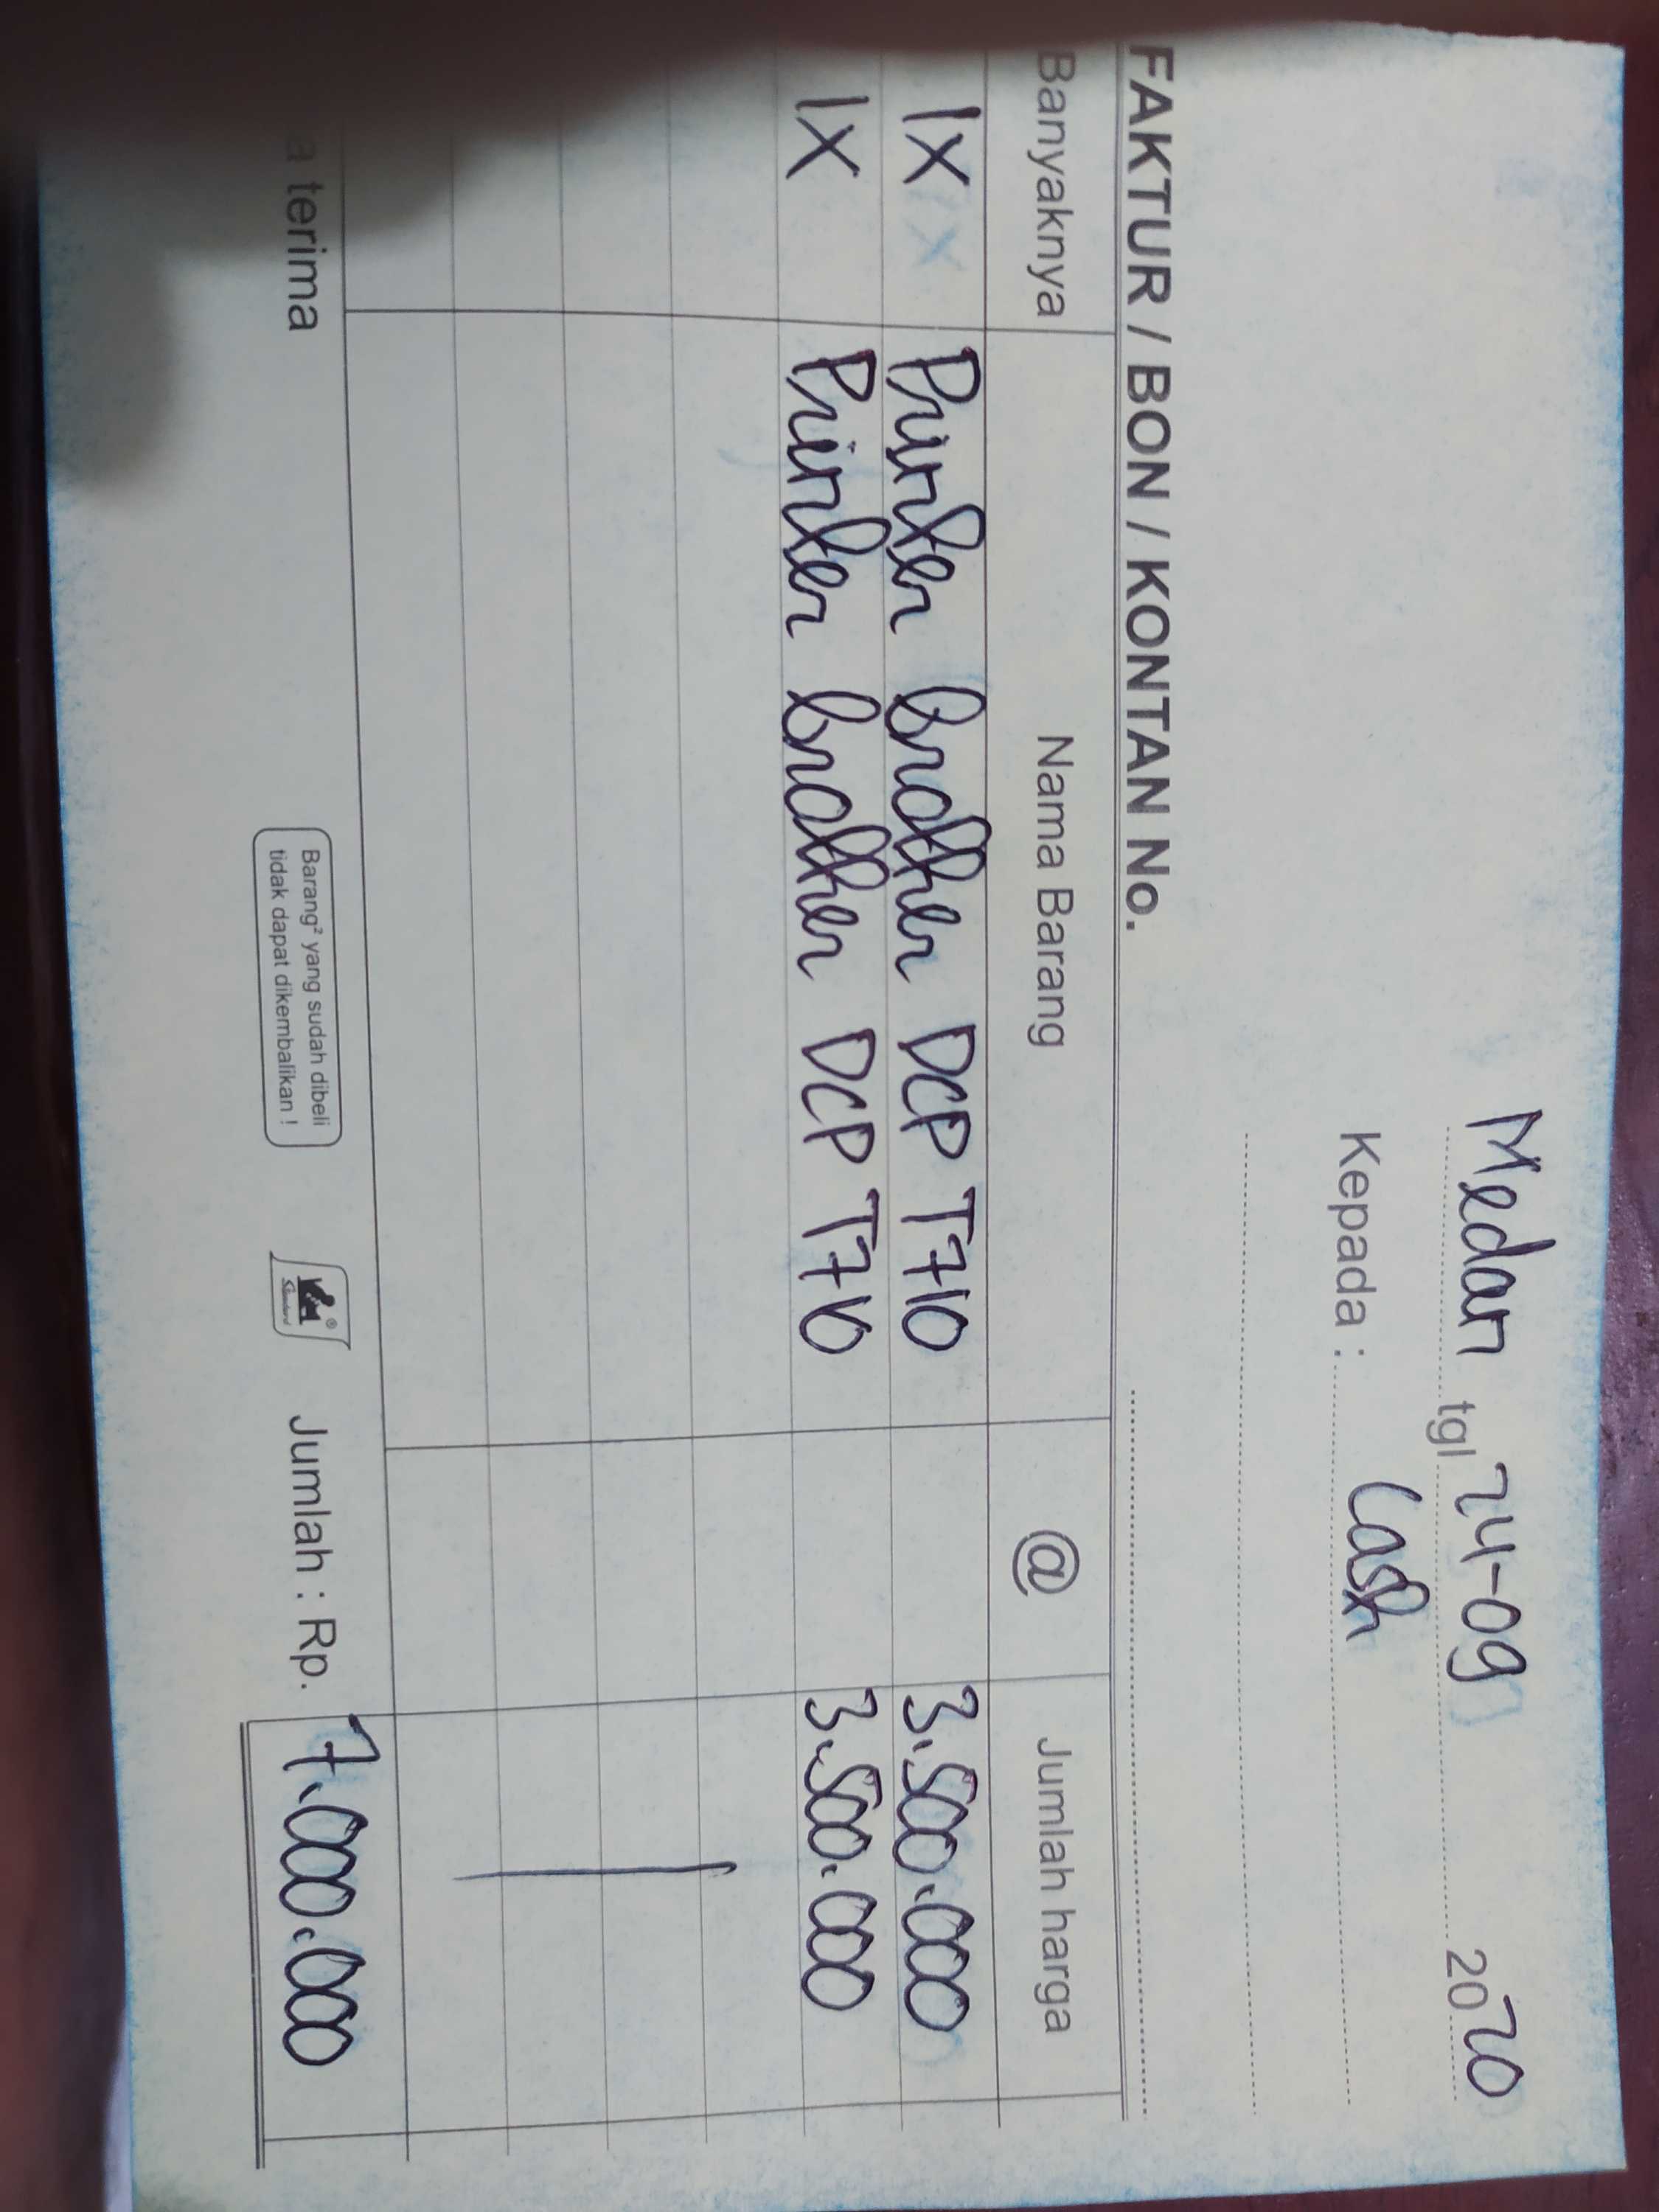 Medan tgl 24-09 2020
Kepada : Cash
FAKTUR / BON / KONTAN No.
Banyaknya Nama Barang @ Jumlah harga
1X Printer brother DCP T710 3.500.000
1X Printer brother DCP T710 3.500.000
a terima
Barang² yang sudah dibeli
tidak dapat dikembalikan !
Jumlah : Rp. 7.000.000